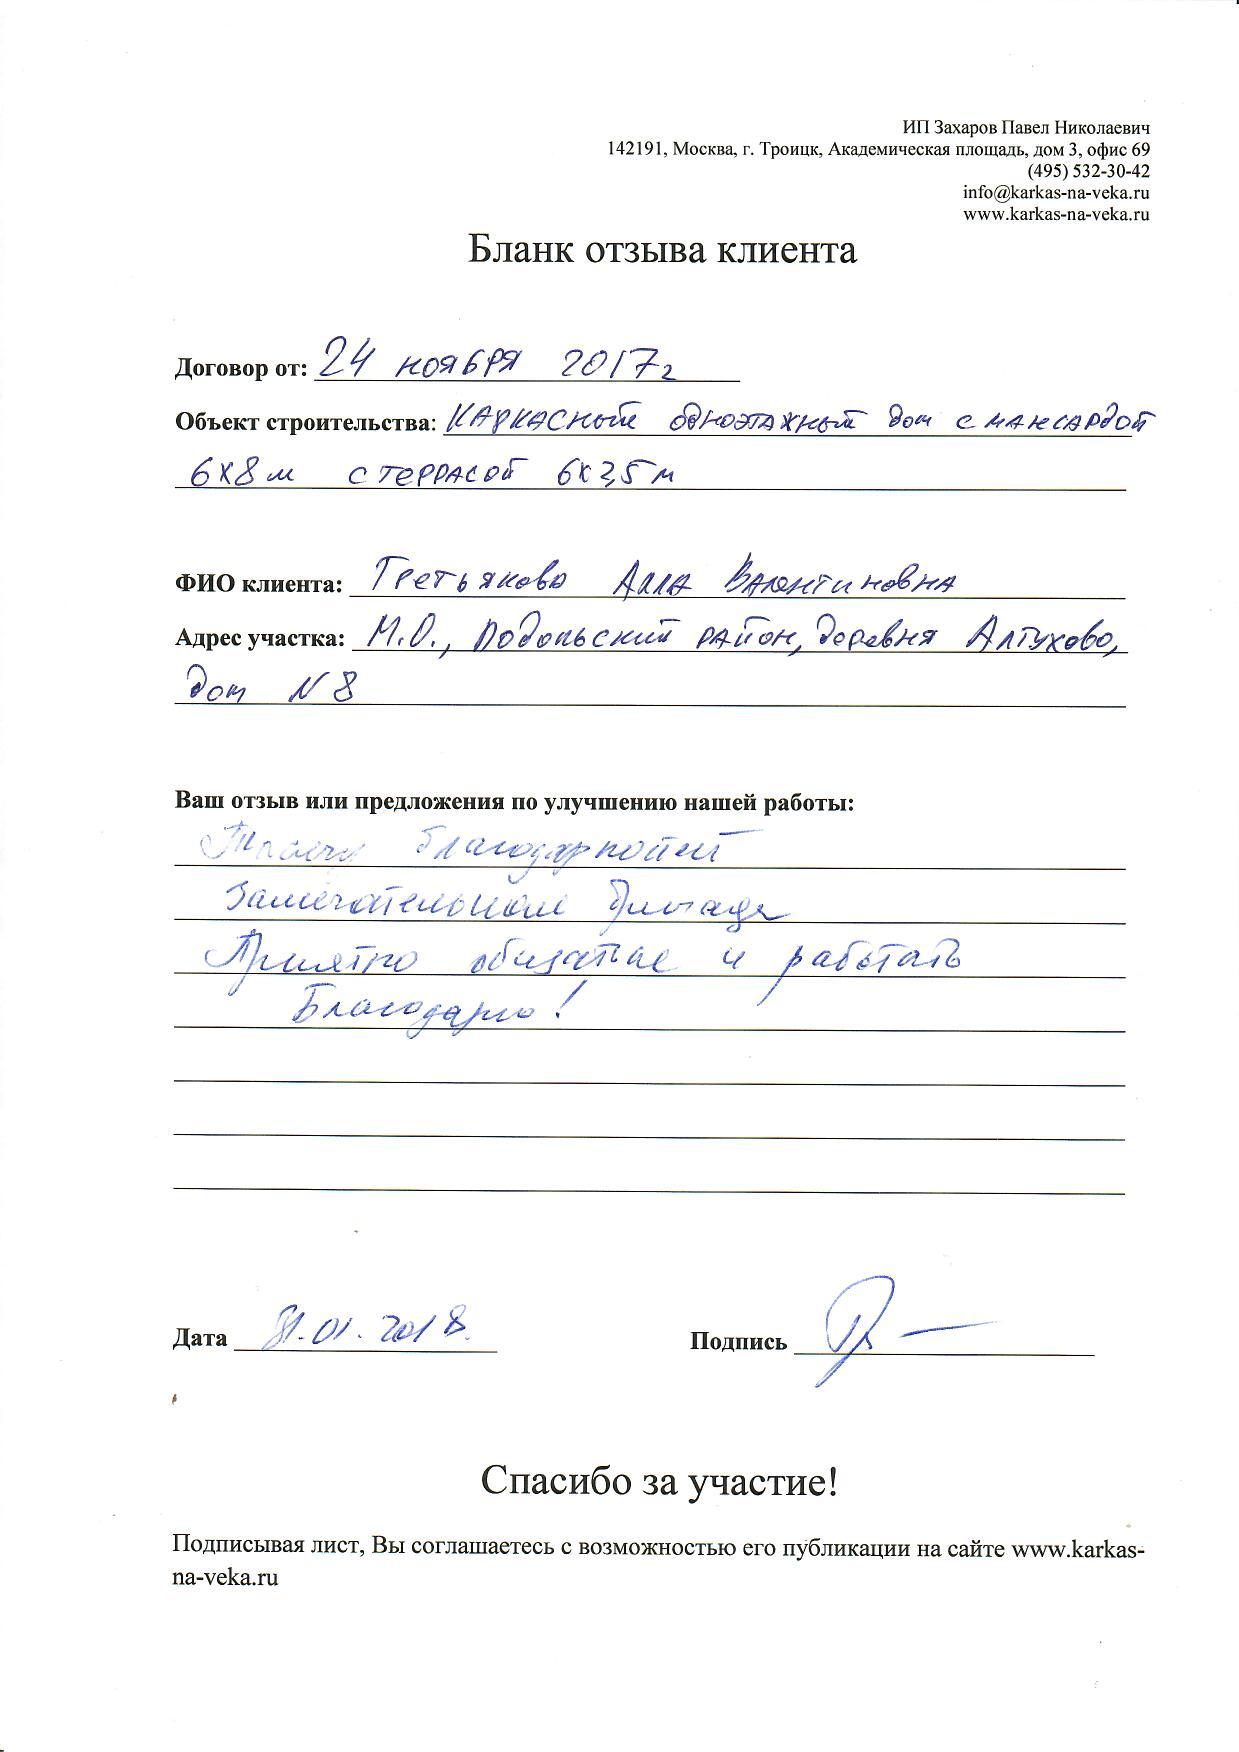 ИП Захаров Павел Николаевич
142191, Москва, г. Троицк, Академическая площадь, дом 3, офис 69
(495) 532-30-42
info@karkas-na-veka.ru
www.karkas-na-veka.ru
Бланк отзыва клиента
Договор от: 24 ноября 2017г
Объект строительства: Каркасный одноэтажный дом с мансардой
6х8м с террасой 6х2,5м
ФИО клиента: Третьякова Алла Валентиновна
Адрес участка: М.О., Подольский район, деревня Алтухово,
дом N 8
Ваш отзыв или предложения по улучшению нашей работы:
Замечательная бригада
Приятно общаться и работать
Благодарю!
Дата 31.01.2018
Подпись
Спасибо за участие!
Подписывая лист, Вы соглашаетесь с возможностью его публикации на сайте www.karkas-
na-veka.ru